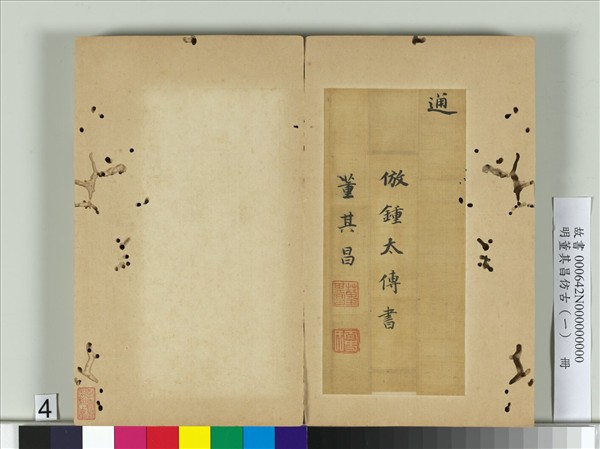 通
倣鍾太傅書
董其昌
故書 000642N000000000
明董其昌仿古（一） 冊
4